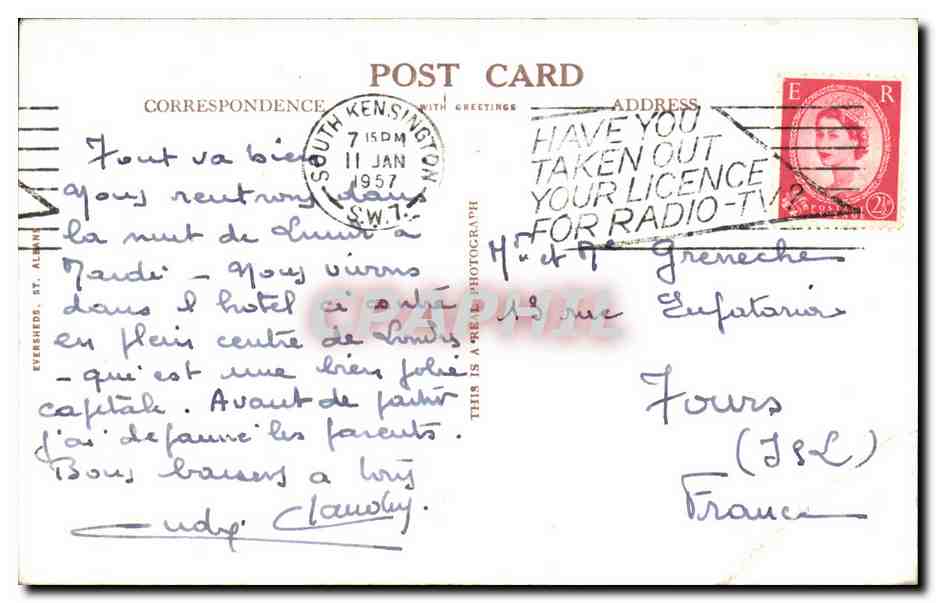 POST CARD
CORRESPONDENCE
WITH GREETINGS
ADDRESS
SOUTH KENSINGTON
7 15PM
11 JAN
1957
S.W.7.
HAVE YOU
TAKEN OUT
YOUR LICENCE
FOR RADIO-TV?
E R
POSTAGE
2½D
Tout va bien
Nous rentrons dans
la nuit de Lundi à
Mardi - Nous vivons
dans l hotel ci contre
en plein centre de Londres
- qui est une bien jolie
capitale. Avant de partir
j'ai dejeuné les parents.
Bons baisers a tous
Claudy.
EVERSHEDS, ST. ALBANS
THIS IS A REAL PHOTOGRAPH
Mr et Me Greneche
13 rue Eupatoria
Tours
(I & L)
France
CPAPHIL